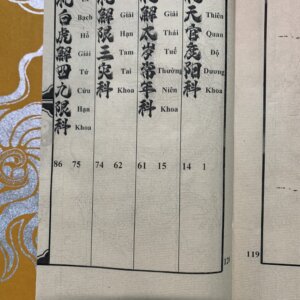 天官度陽科
Thiên Quan Độ Dương Khoa
1 14
解太歲常年科
Giải Thái Tuế Thường Niên Khoa
15 61
解限三災科
Giải Hạn Tam Tai Khoa
62 74
白虎解四九限科
Bạch Hổ Giải Tứ Cửu Hạn Khoa
75 86
119